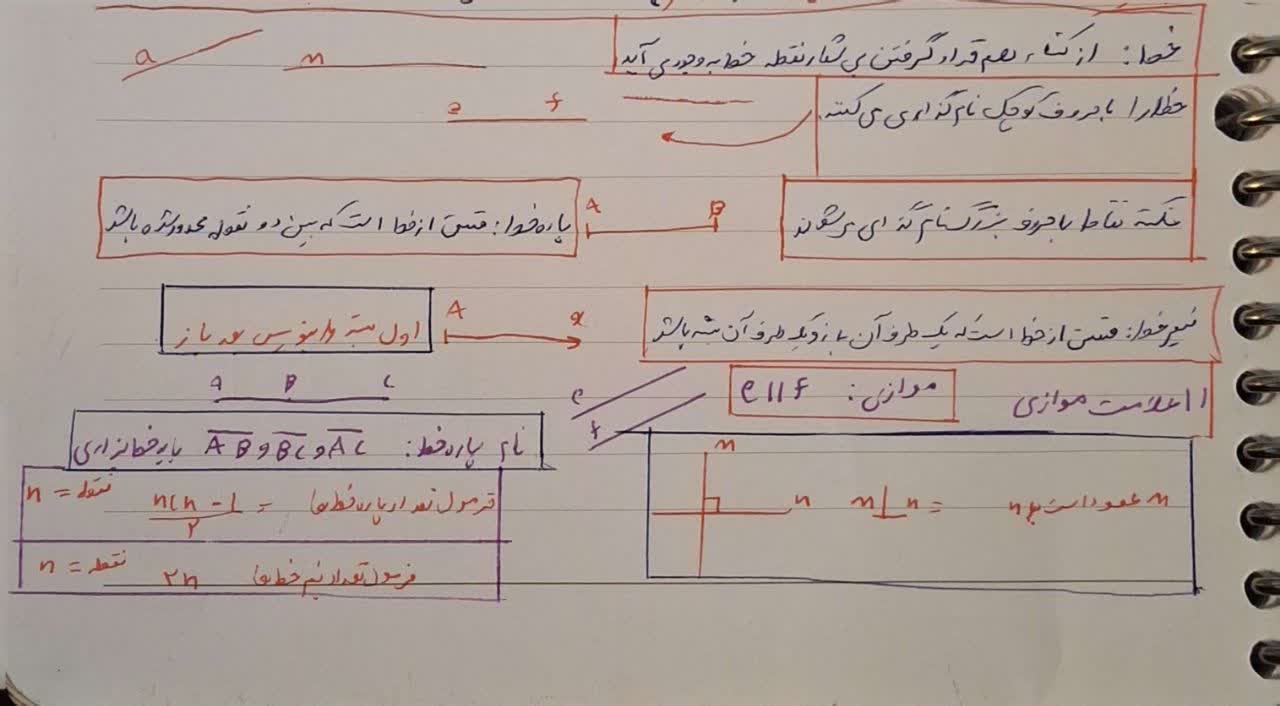 خط: از کنار هم قرار گرفتن بی شمار نقطه خط به وجود می آید
a
m
خط را با حروف کوچک نام گذاری می کنند.
e f
نکته نقاط با حروف بزرگ نام گذاری می شوند
A B
پاره خط: قسمتی از خط است که بین دو نقطه محدود شده باشد
نیم خط: قسمتی از خط است که یک طرف آن باز و یک طرف آن بسته باشد
A x
اول بسته را بنویس بعد باز
|| علامت موازی
موازی: e || f
e
f
A B C
نام پاره خط: AC و BC و AB
m عمود است بر n = m ⊥ n
m
n
فرمول تعداد پاره خط ها = n(n - 1) / ۲ نقطه = n
فرمول تعداد نیم خط ها ۲n نقطه = n